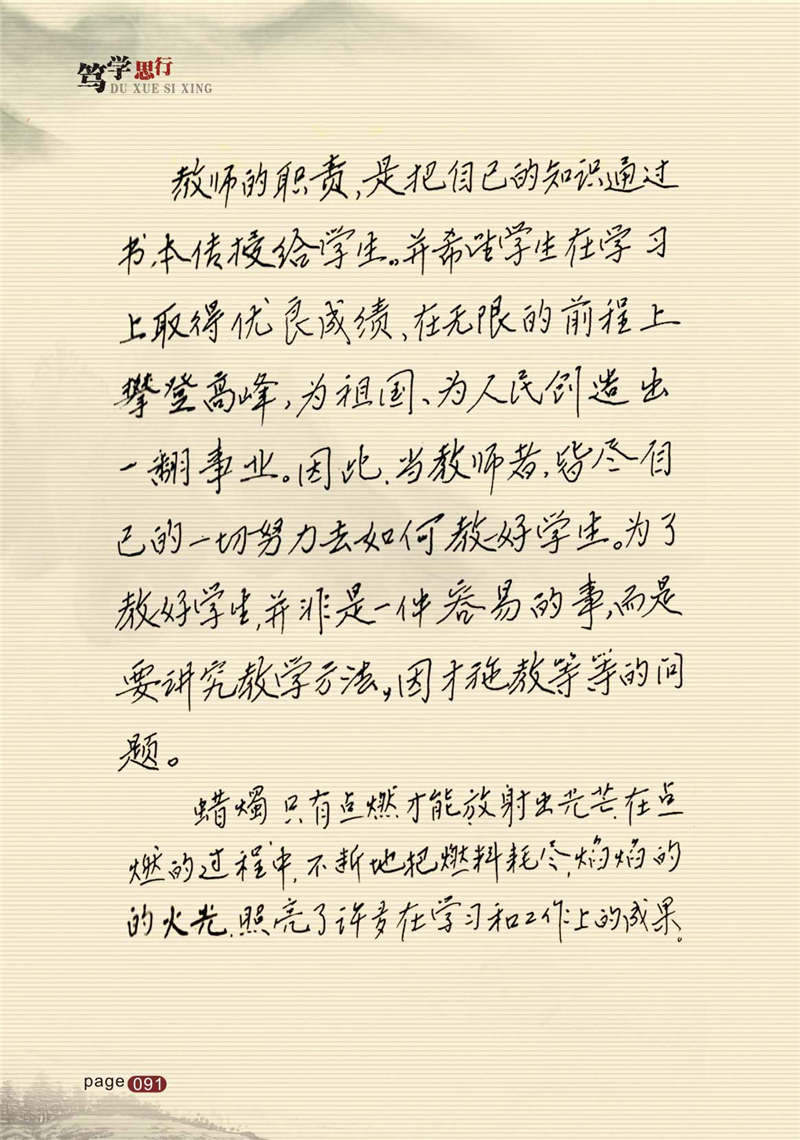 笃学思行
DU XUE SI XING
教师的职责,是把自己的知识通过
书本传授给学生。并希望学生在学习
上取得优良成绩、在无限的前程上
攀登高峰,为祖国、为人民创造出
一翻事业。因此、当教师者,皆尽自
己的一切努力去如何教好学生。为了
教好学生,并非是一件容易的事,而是
要讲究教学方法,因才施教等等的问
题。
蜡烛只有点燃才能放射出光芒、在点
燃的过程中,不断地把燃料耗尽,焰焰的
的火光、照亮了许多在学习和工作上的成果。
page 091